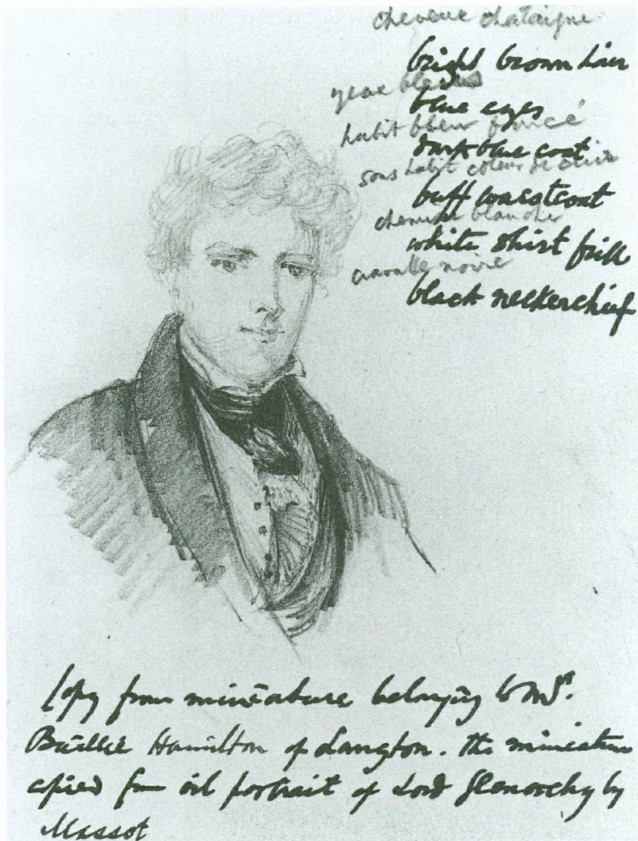 cheveux chataigne
bright brown hair
yeux bleus
blue eyes
habit bleu foncé
dark blue coat
sous habit coleur de
buff waistcoat
chemise blanche
white shirt frill
cravatte noire
black neckerchief
Copy from miniature belonging to Mrs.
Baillie Hamilton of Langton. The miniature
copied from oil portrait of Lord Glenorchy by
Massot